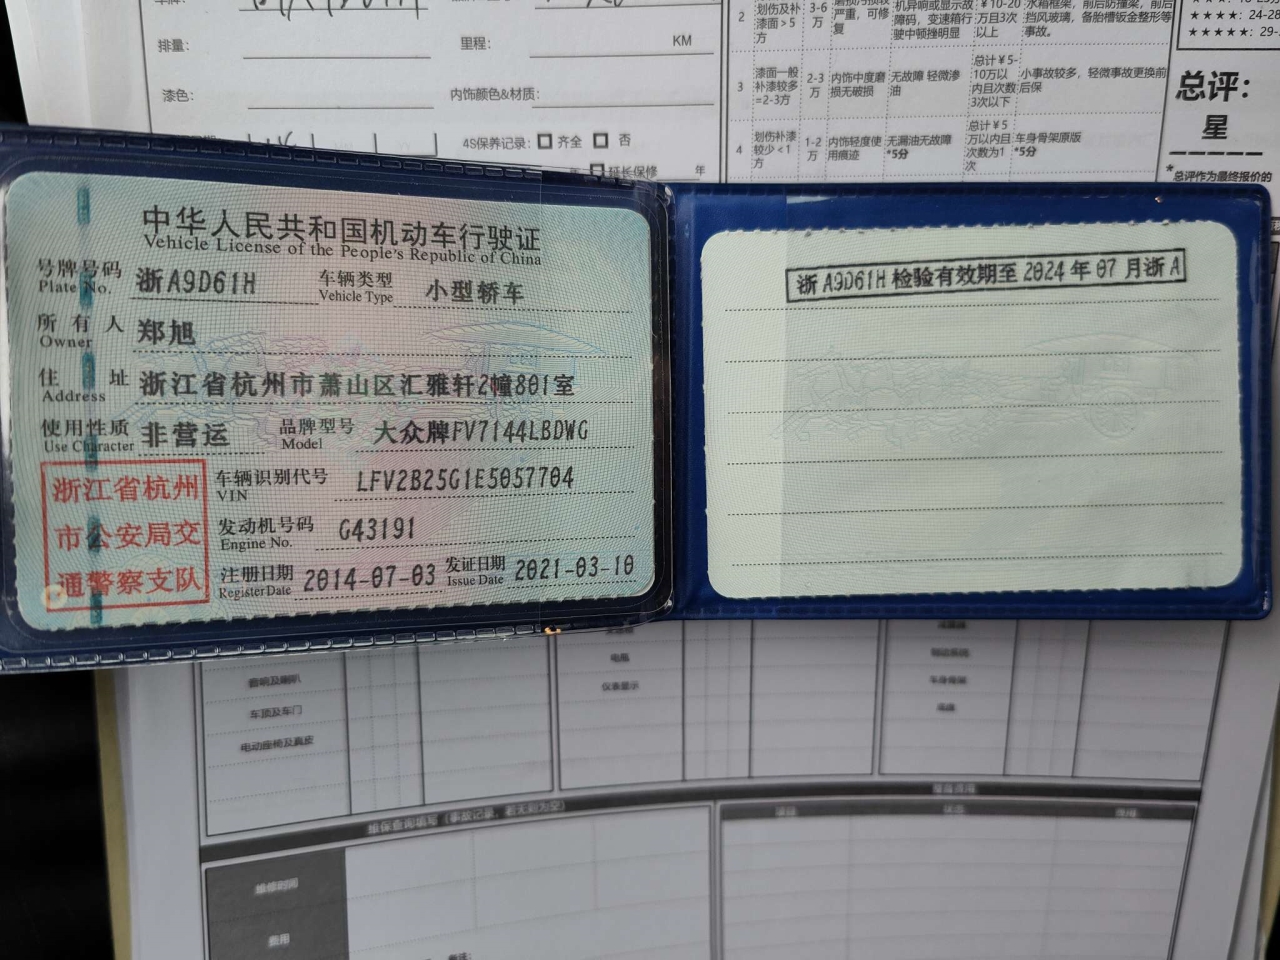 排量：
里程：
KM
漆色：
内饰颜色&材质：
4S保养记录：
齐全
否
延长保修
年
2
划伤及补
漆面＞5
方
3-6
万
严重，可修
复
机异响或显示故
障码，变速箱行
驶中顿挫明显
￥10-20
万且3次
以上
水箱框架，前后防撞梁，前后
挡风玻璃，备胎槽钣金整形等
事故。
3
漆面一般
补漆较多
=2-3方
2-3
万
内饰中度磨
损无破损
无故障 轻微渗
油
总计￥5-
10万以
内且次数
3次以下
小事故较多，轻微事故更换前
后保
4
划伤补漆
较少＜1
方
1-2
万
内饰轻度使
用痕迹
无漏油无故障
*5分
总计￥5
万以内且
次数为1
次
车身骨架原版
*5分
★★★★: 24-28
★★★★★: 29-
总评：
星
*总评作为最终报价的
中华人民共和国机动车行驶证
Vehicle License of the People's Republic of China
号牌号码 浙A9D61H 车辆类型 小型轿车
Plate No. Vehicle Type
所有人 郑旭
Owner
住址 浙江省杭州市萧山区汇雅轩2幢801室
Address
使用性质 非营运 品牌型号 大众牌FV7144LBDWG
Use Character Model
浙江省杭州
市公安局交
通警察支队
车辆识别代号 LFV2B25G1E5057704
VIN
发动机号码 G43191
Engine No.
注册日期 2014-07-03 发证日期 2021-03-10
Register Date Issue Date
浙A9D61H 检验有效期至 2024 年 07 月浙A
音响及喇叭
车顶及车门
电动座椅及真皮
电瓶
仪表显示
维保查询填写（事故记录，若无则为空）
维修时间
费用